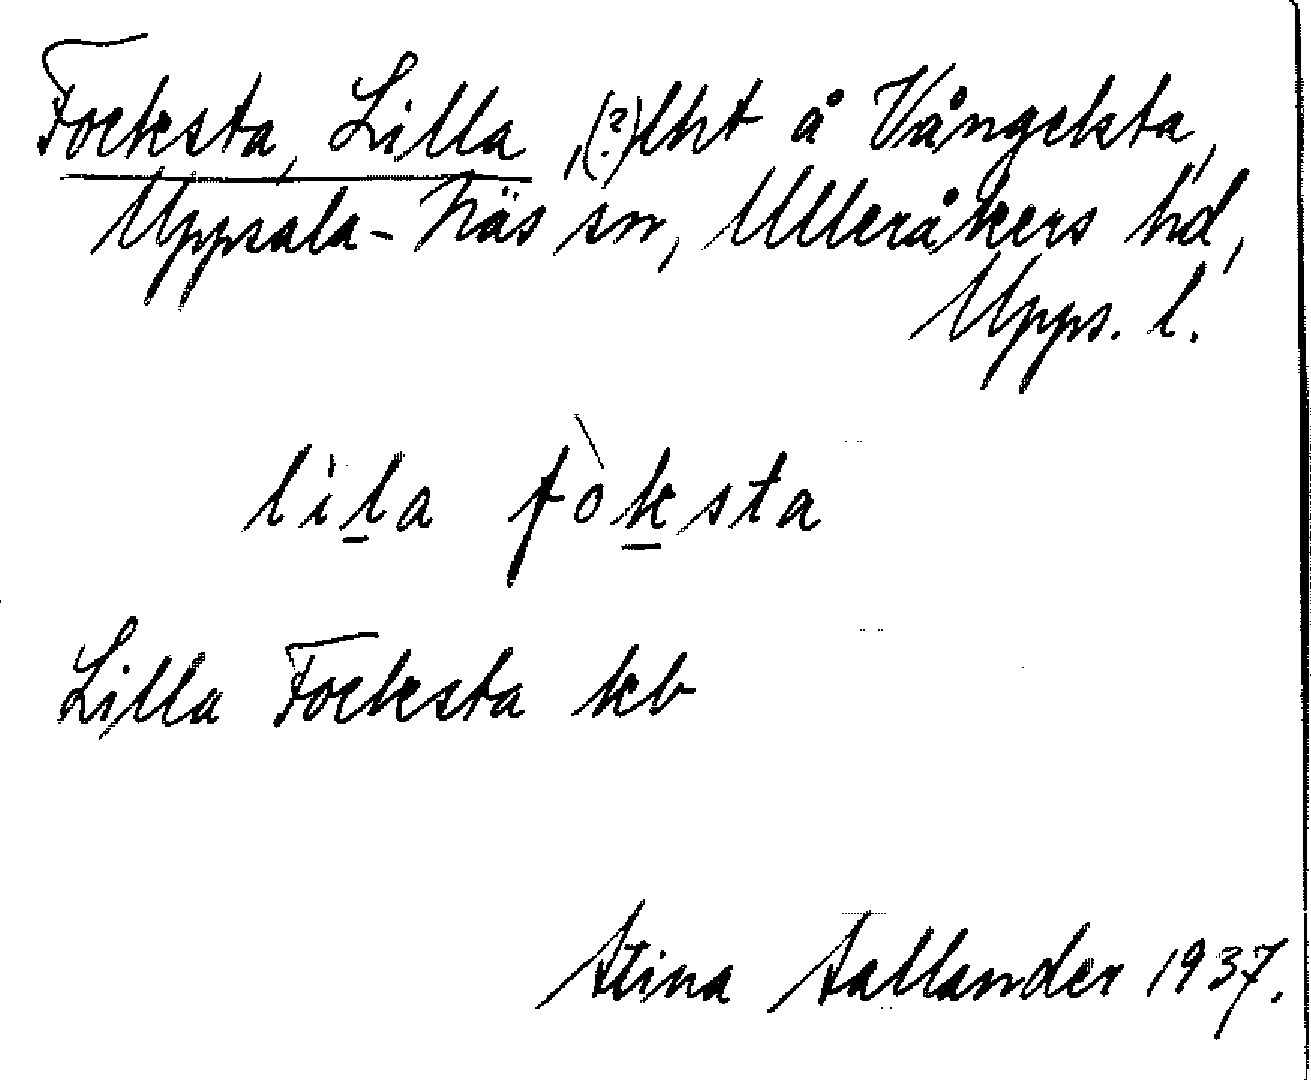 Focksta, Lilla, (?) lht å Vångeksta,
Uppsala-Näs sn, Ulleråkers hd,
Upps. l.
lila fòksta
Lilla Focksta kb
Stina Sallander 1937.